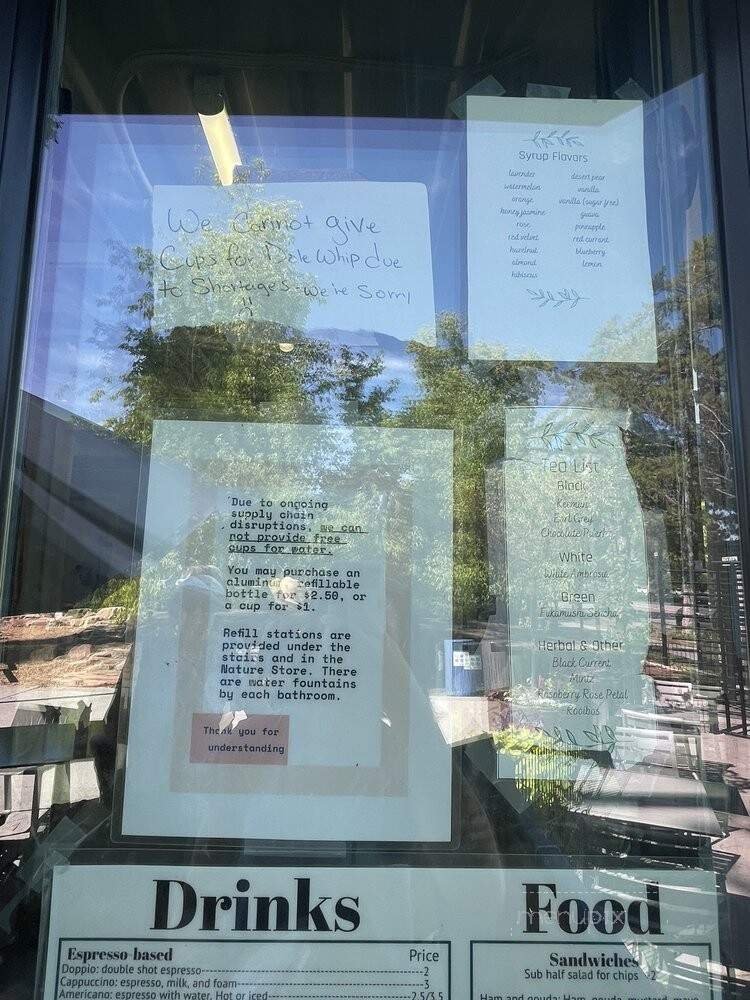 We Cannot give
Cups for Dole Whip due
to Shortages. We're Sorry
Syrup Flavors
lavender
watermelon
orange
honey jasmine
rose
red velvet
hazelnut
almond
hibiscus
desert pear
vanilla
vanilla (sugar free)
guava
pineapple
red currant
blueberry
lemon
Due to ongoing
supply chain
disruptions, we can
not provide free
cups for water.
You may purchase an
aluminum refillable
bottle for $2.50, or
a cup for $1.
Refill stations are
provided under the
stairs and in the
Nature Store. There
are water fountains
by each bathroom.
Thank you for
understanding
Tea List
Black
Keemun
Earl Grey
Chocolate Puerh
White
White Ambrosia
Green
Fukamushi Sencha
Herbal & Other
Black Currant
Mintz
Raspberry Rose Petal
Rooibos
Drinks
Espresso-based Price
Doppio: double shot espresso 2
Cappuccino: espresso, milk, and foam 3
Americano: espresso with water. Hot or iced 2.5/3.5
Food
Sandwiches
Sub half salad for chips +2
Ham and gouda: Ham, gouda,
menupix